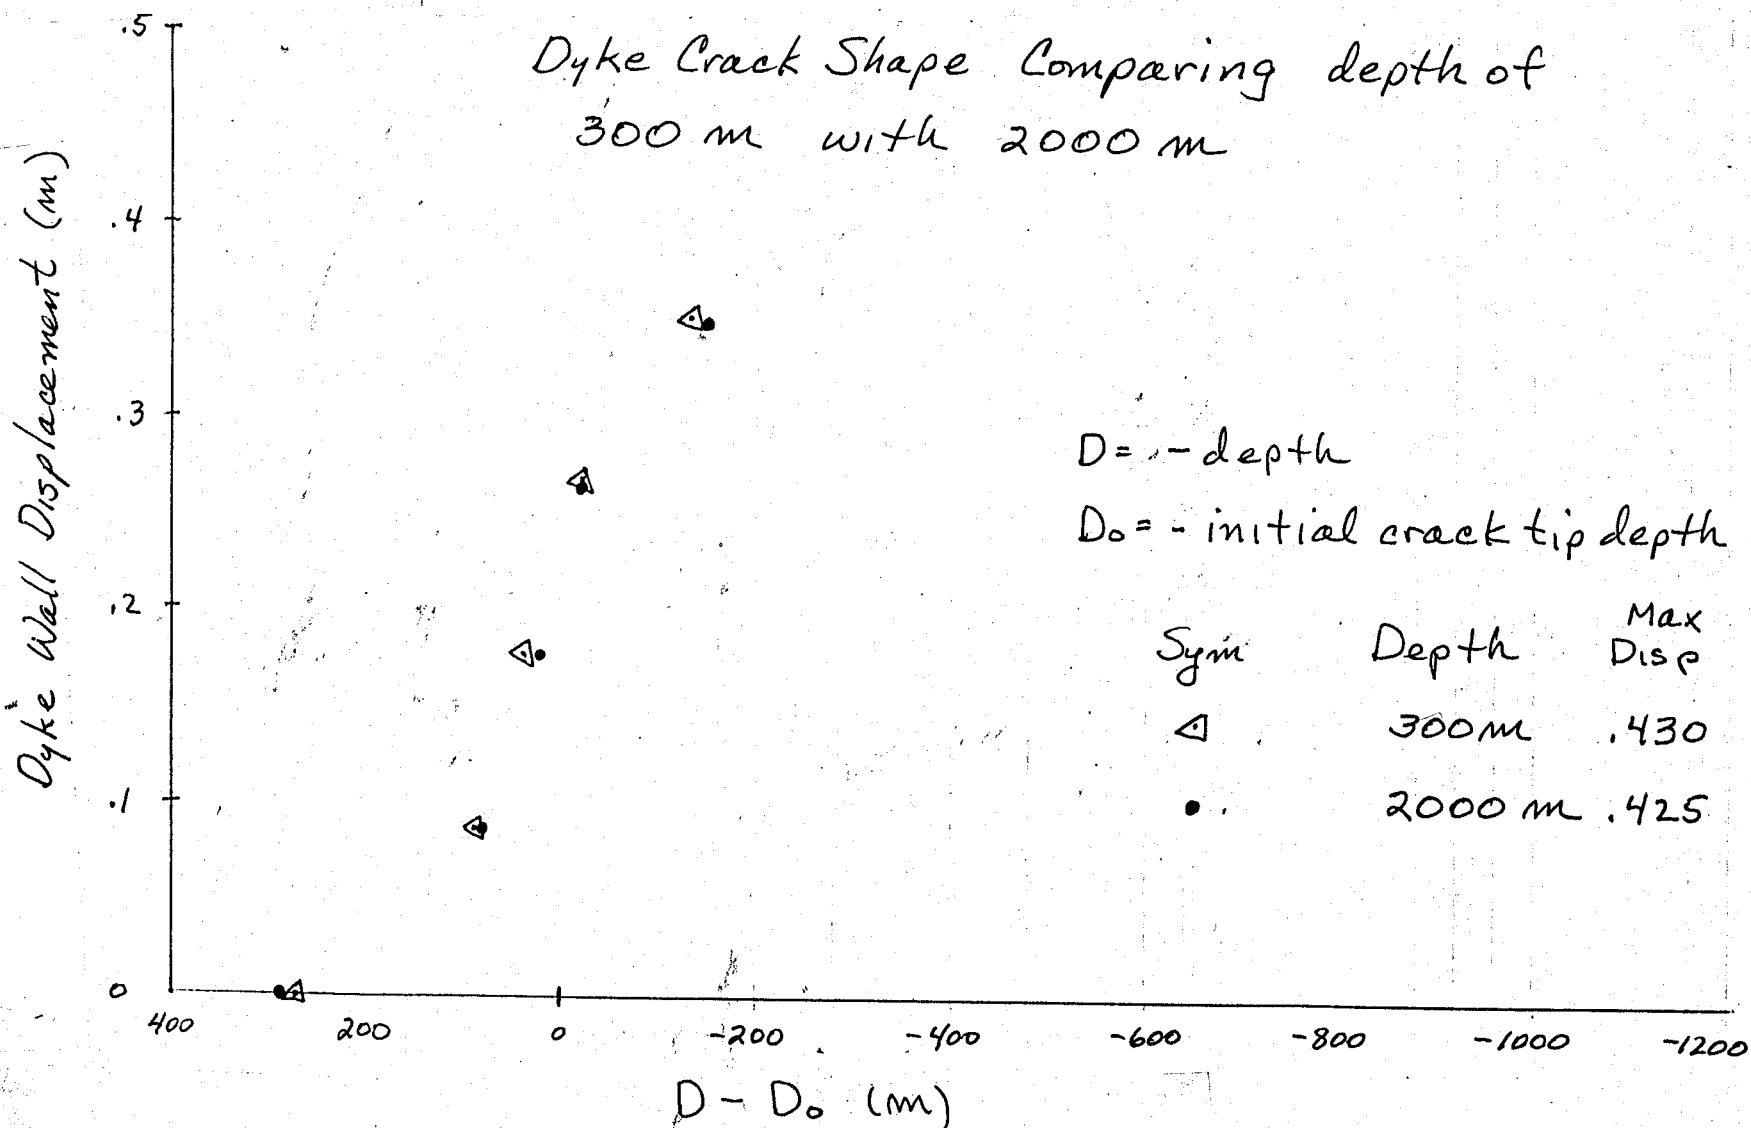 Dyke Crack Shape Comparing depth of
300 m with 2000 m
Dyke Wall Displacement (m)
.5
.4
.3
.2
.1
0
D = - depth
Do = - initial crack tip depth
Sym Depth Max Disp
300 m .430
2000 m .425
400 200 0 -200 -400 -600 -800 -1000 -1200
D - Do (m)